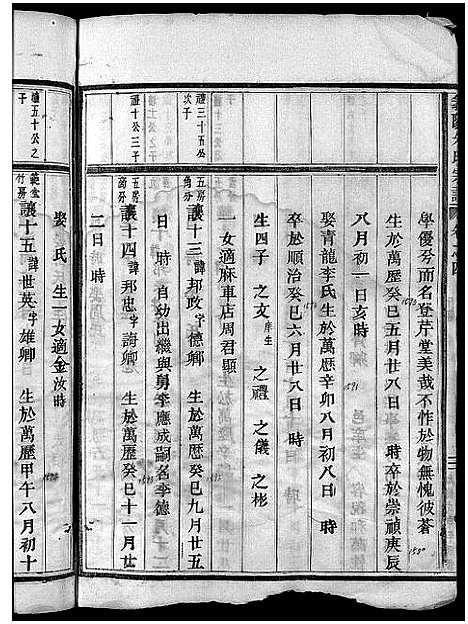 學優芬而名登芹堂美哉不怍於物無愧彼蒼
生於萬歷癸巳五月廿八日 時卒於崇禎庚辰
1593
1580
八月初一日亥時
娶青龍李氏生於萬歷辛卯八月初八日 時
1591
卒於順治癸巳六月廿八日 時
生四子之友庠生 之禮 之儀 之彬
一女適麻車店周君顯
禮三十五公次子
五房角分
讓十三諱邦政字德卿 生於萬歷癸巳九月廿五
1593
日 時 自幼出繼與舅李應成嗣名李德
禮十公三子
五房
讓十四諱邦忠字 卿 生於萬歷癸巳十一月廿
1593
二日時
娶 氏 生一女適金汝時
禮五十公之子
範堂竹房
讓十五諱世英字雄卿 生於萬歷甲午八月初十